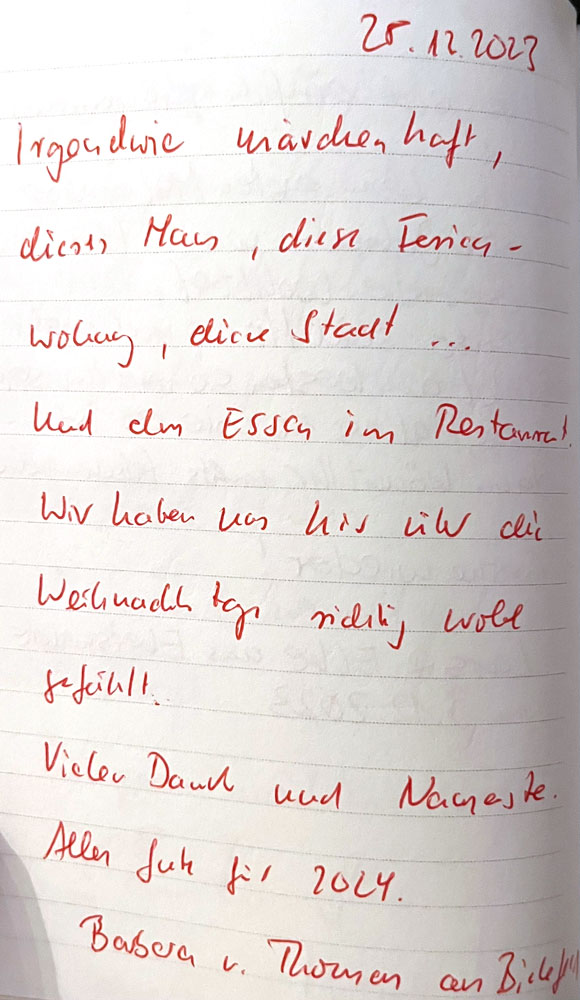 25.12.2023
Irgendwie märchenhaft,
dieses Haus, diese Ferien-
wohnung, diese Stadt ...
Und das Essen im Restaurant.
Wir haben uns hier über die
Weihnachtstage richtig wohl
gefühlt.
Vielen Dank und Nameste.
Alles Gute für 2024.
Barbara u. Thomas aus Bielefeld